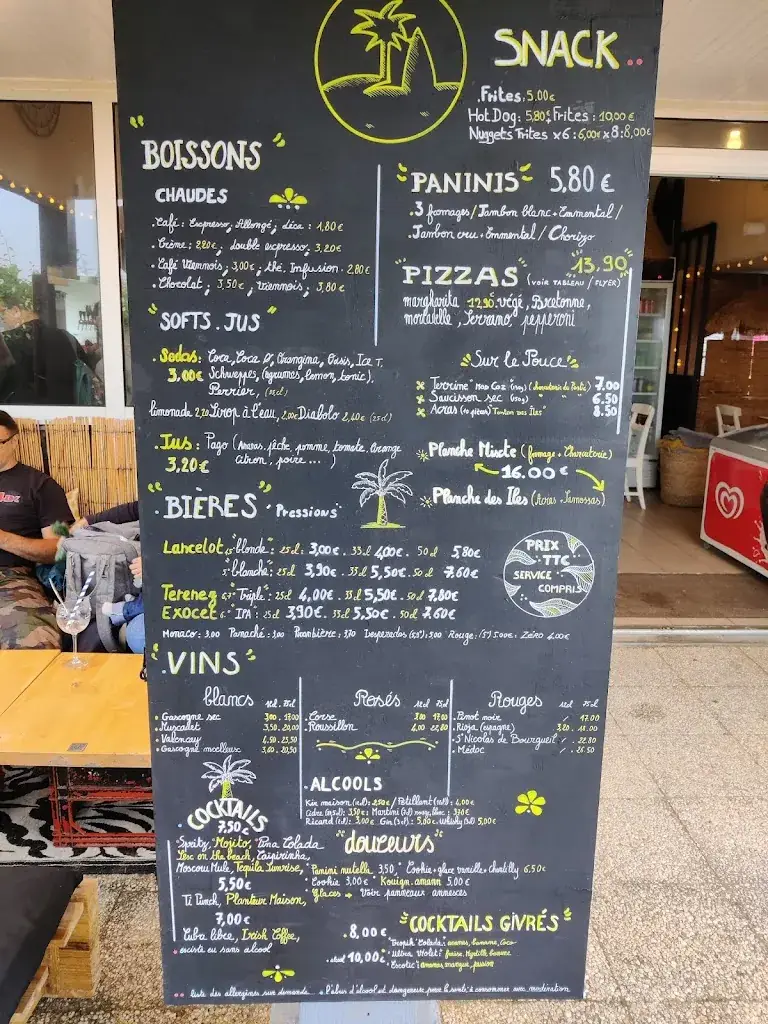 SNACK
.Frites: 5,00€
Hot Dog: 5,80€ Frites: 10,00€
Nuggets Frites x6: 6,00€ x8: 8,00€
BOISSONS
CHAUDES
.Café: Espresso, Allongé, déca: 1,80€
.Crème: 2,20€, double espresso, 3,20€
.Café Viennois, 3,00€, thé, Infusion. 2,80€
.Chocolat, 3,50€, viennois, 3,80€
"PANINIS" 5,80€
.3 fromages/Jambon blanc.Emmental/
.Jambon cru.Emmental/Chorizo
"PIZZAS" (VOIR TABLEAU / FLYER) 13,90
margharita 12,90, végé, Bretonne,
mortadelle, Serrano, pepperoni
"SOFTS.JUS
.Sodas: Coca, Coca 0, Orangina, Oasis, Ice T,
3,00€ Schweppes, (agrumes, lemon, tonic),
Perrier, (33cl)
limonade 2,20 Sirop à l'eau, 2,00€ Diabolo 2,40€ (25cl)
.Jus: Pago (Ananas, pêche, pomme, tomate, Orange
3,20€ citron, poire ...)
"Sur le Pouce"
Terrine 7.00
Saucisson sec 6.50
Acras (10 pièces) 8.50
Planche Mixte (fromage + Charcuterie)
16.00€
Planche des Iles (Acras . Samossas)
PRIX TTC SERVICE COMPRIS
"BIÈRES" "Pressions"
Lancelot "blonde": 25cl: 3,00€. 33cl 4,00€. 50cl 5,80€
5° "blanche": 25cl 3,90€. 33cl 5,50€. 50cl 7.60€
Terenez "Triple": 25cl 4,00€. 33cl 5,50€. 50cl 7,80€
EXOCET 6° "IPA": 25cl 3,90€. 33cl 5,50€. 50cl 7.60€
Monaco: 3,00 Panaché: 3,00 Picon bière: 3,70 Desperados (5,9°): 5,00 Rouge: (5°) 5,00€: Zéro 4,00€
"VINS"
blancs 12cl. 75cl
. Gascogne sec 3,00. 17,00
. Muscadet 3,50. 20,00
. Valençay 4,50. 23,50
. Gascogne moelleux 3,60. 20,50
Rosés 12cl 75cl
. Corse 3,00 17,00
. Roussillon 4,00 22,80
Rouges 12cl 75cl
. Pinot noir / 17.00
. Rioja (espagne) 3,20. 18.00
. St Nicolas de Bourgueil / . 22.80
. Médoc / . 26.50
. ALCOOLS
Kir maison (12cl): 2,50€ / Pétillant (12cl): 4,00€
Cidre (27,5cl): 3,50€: Martini (5cl) rouge, blanc: 3,70€
Ricard (2cl): 3,00€ Gin (3cl): 5,00€. Whisky (3cl) 5,00€
. COCKTAILS
7.50€
"Spritz, Mojito, Pina Colada
Sex on the beach, Caïpirinha,
Moscow Mule, Tequila Sunrise,
5,50€
Ti Punch, Planteur Maison,
7,00€
Cuba libre, Irish Coffee,
. existe en sans alcool
"douceurs"
"Panini nutella 3,50," Cookie + glace vanille + chantilly 6.50€
"Cookie 3,00€" Kouign.amann 5,00€
"Glaces → Voir panneaux annexes
"COCKTAILS GIVRÉS"
. 8,00€
10,00€
"Tropik' Colada: ananas, banane, Coco
"Ultra Violet: fraise, Myrtille, banane
"Exotic: ananas, mangue, passion
.. liste des allergènes sur demande . l'abus d'alcool est dangereux pour la santé à consommer avec modération